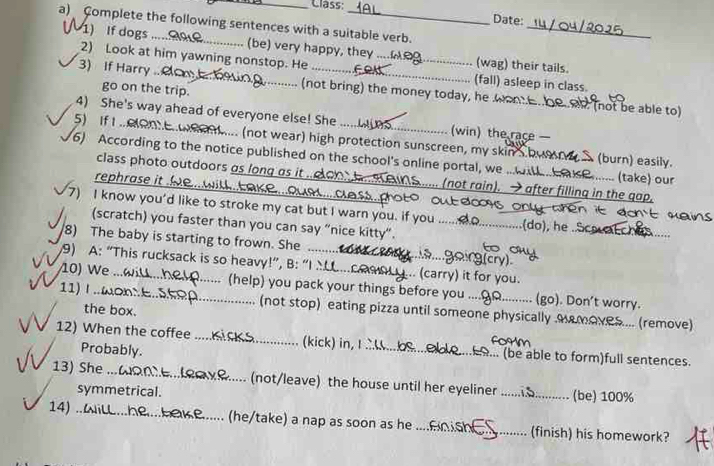 Class: 1AL
Date: 14/04/2025
a) Complete the following sentences with a suitable verb.
1) If dogs ..... are ............ (be) very happy, they .... wag ............ (wag) their tails.
2) Look at him yawning nonstop. He ............ fell ............ (fall) asleep in class.
3) If Harry .. don't bring .......... (not bring) the money today, he won't be able to (not be able to)
go on the trip.
4) She's way ahead of everyone else! She ..... wins .............. (win) the race —
5) If I .. don't wear .... (not wear) high protection sunscreen, my skin burns (burn) easily.
6) According to the notice published on the school's online portal, we .. will take ...... (take) our
class photo outdoors as long as it .. don't rains .... (not rain). → after filling in the gap,
rephrase it . We will take our class photo outdoors only when it don't rains
7) I know you'd like to stroke my cat but I warn you. if you ..... do ............ (do), he . Scratches ....
(scratch) you faster than you can say "nice kitty".
8) The baby is starting to frown. She ........ is going to cry (cry).
9) A: "This rucksack is so heavy!", B: "I 'll ... carry .. (carry) it for you.
10) We ... will help ...... (help) you pack your things before you .... go ......... (go). Don't worry.
11) I .. won't stop ............... (not stop) eating pizza until someone physically removes .... (remove)
the box.
12) When the coffee ..... kicks ............. (kick) in, I 'll be able to form ... (be able to form)full sentences.
Probably.
13) She ... won't leave ...... (not/leave) the house until her eyeliner ...... is .......... (be) 100%
symmetrical.
14) .. Will he take ...... (he/take) a nap as soon as he .... finishES ......... (finish) his homework?